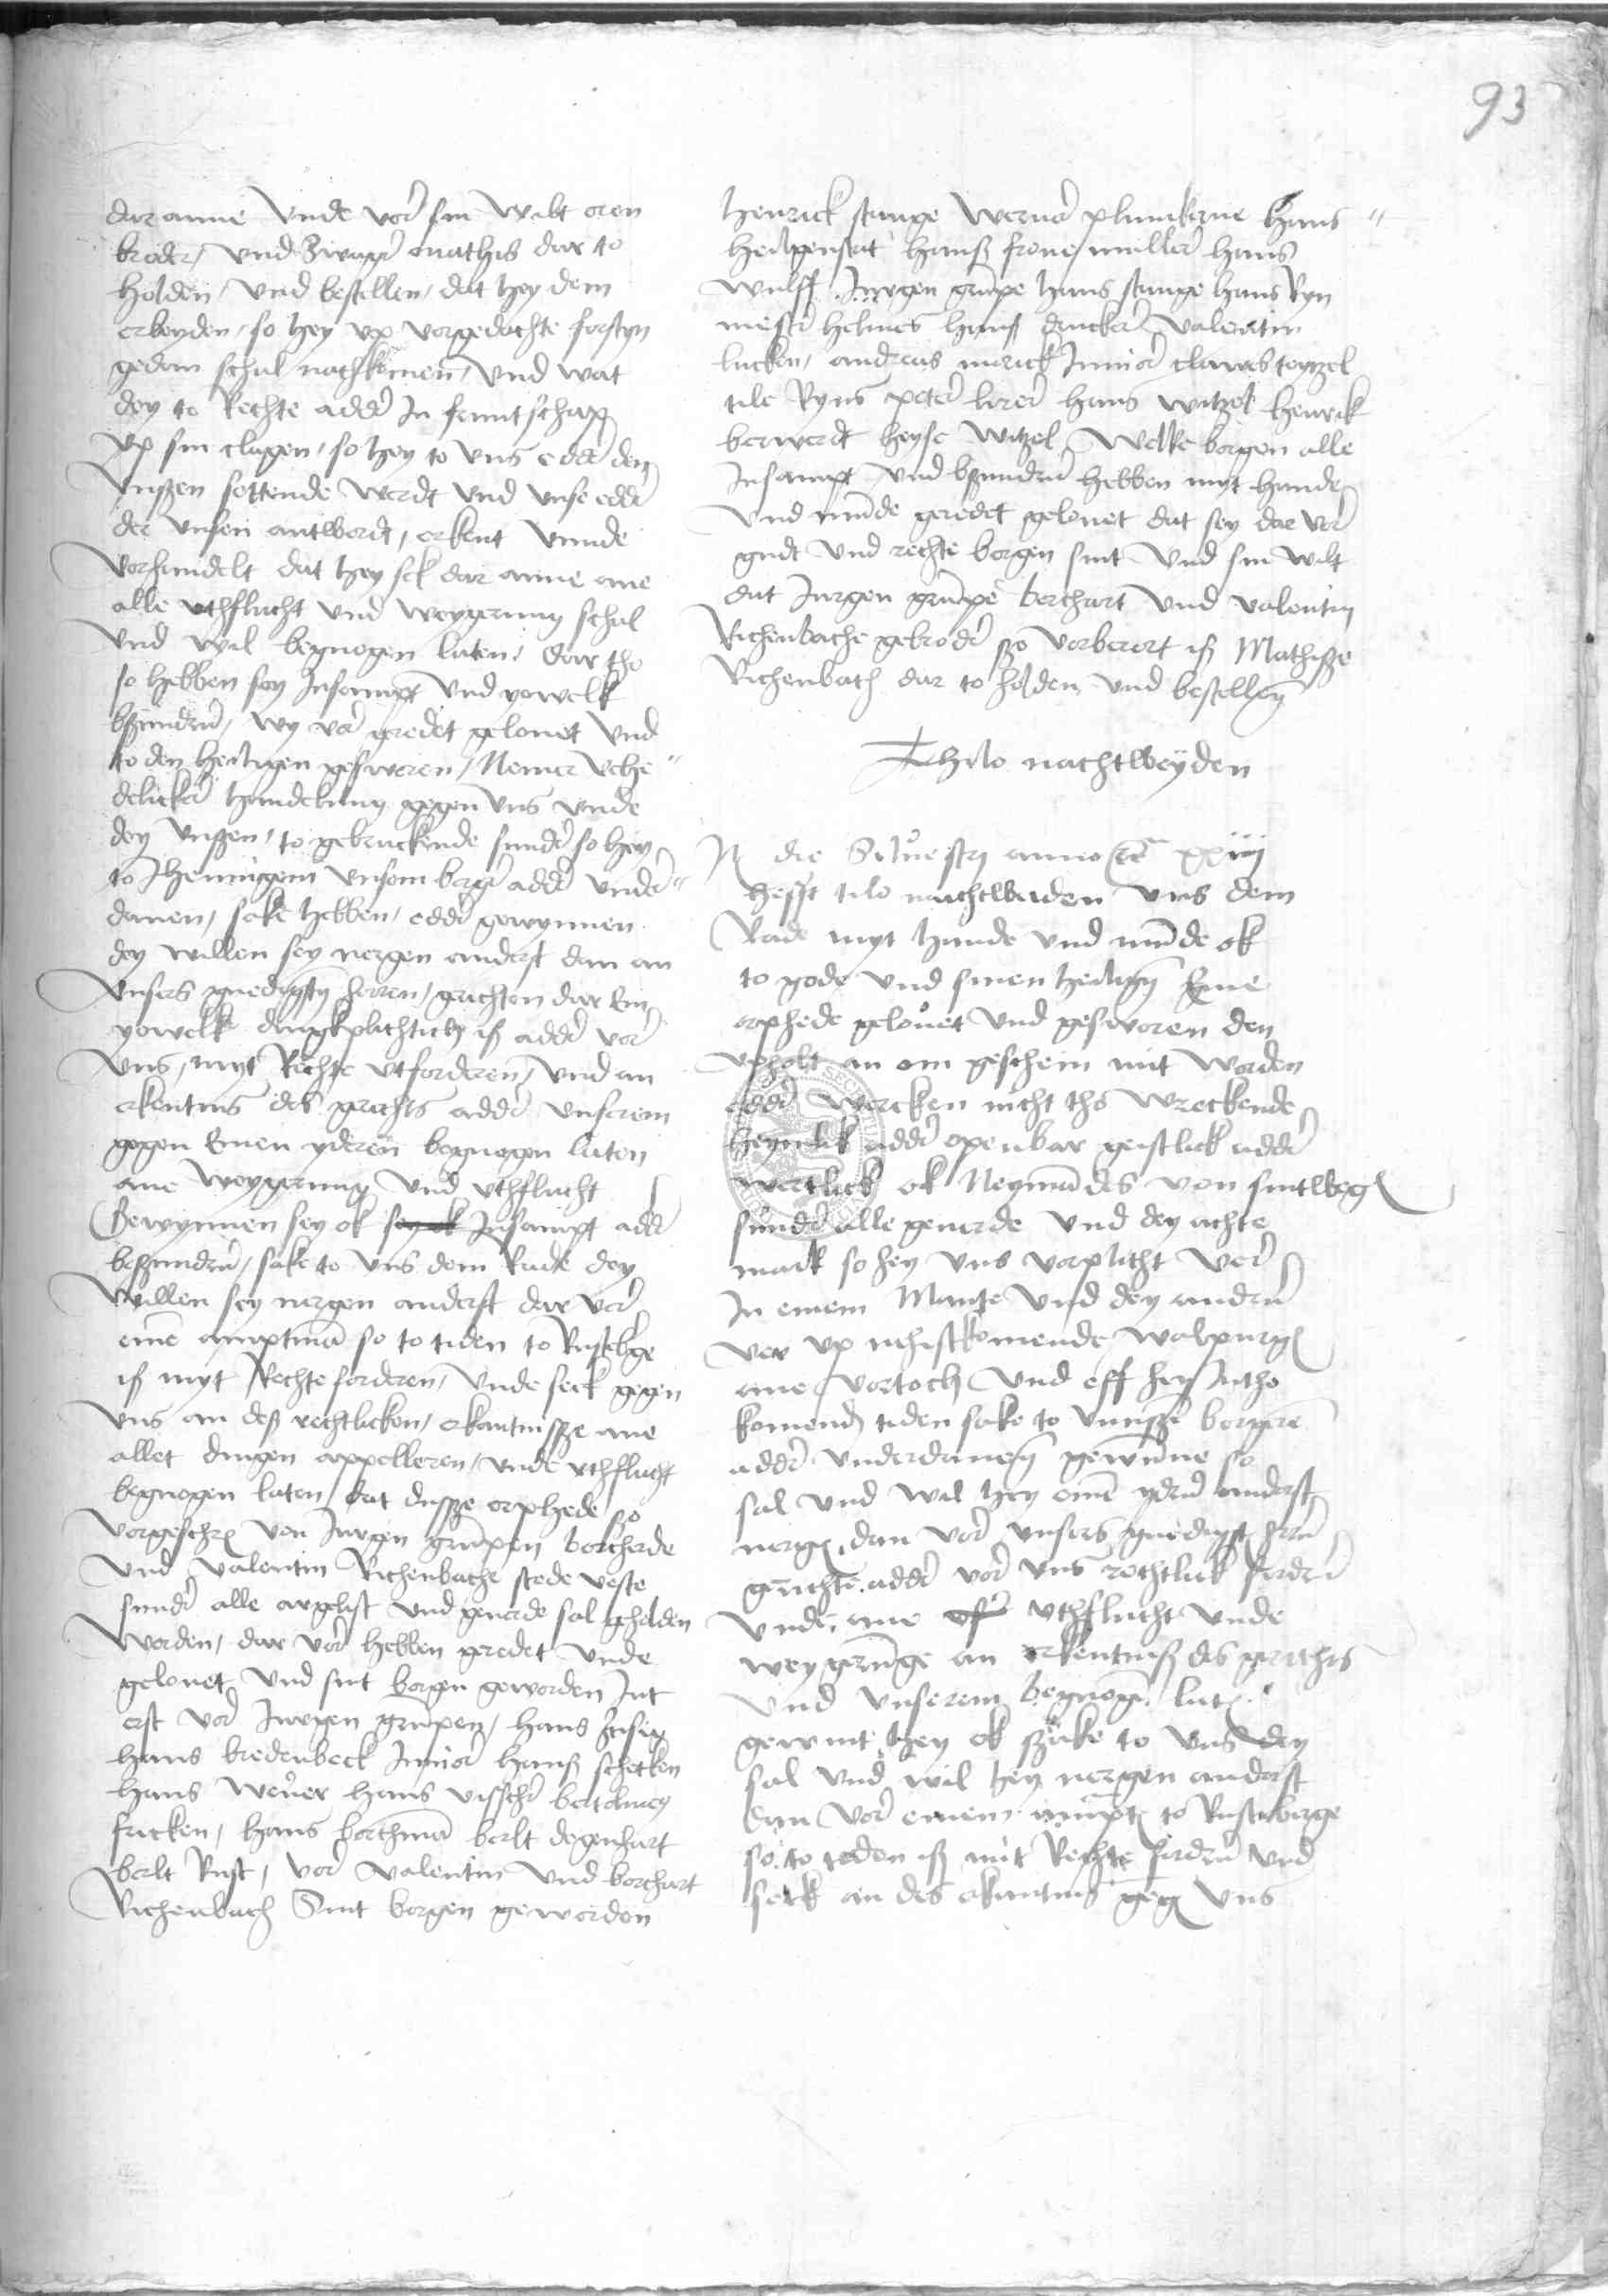 93
dar anne Vnde vor sin wilt oren
broder, vnd Swager mathis dar to
holden, vnd bestellen, dat hey dem
erbeyden, so hey vp vorgedachte forstyn
gedan schal nachkomen, Vnd wat
dey to Rechte adder In fruntschapp
Vp sin clagen, so hey to vns edder den
Vnßen settende werdt vnd vnse edder
der vnsen antwerdt, erkent vnnde
Vorhandelt dat hey sek dar anne ane
alle vthflucht vnd weygerung schal
Vnd wil begnogen laten, dar tho
so hebben sey Insampt vnd yowelk
bßundern, wy vor geredet gelouet vnd
to den heiligen gesworen, Nemer vehe"
delicker handelung gegen vns vnde
dey vnßen, to gebruckende sunder so hey
to Jhennigem vnsem borger adder vnder"
danen, sake hebben, edder gewynnen
dey willen sey nergen anderst dan an
Vnsers gnedigsten herren, gerichten dar Ein
yowelk dingkplichtich iß adder vor
Vns, myt Rechte vtforderen, vnd an
erkentnis des gerichts adder vnserem
gegen Einen yderen begnogen laten
ane weygerung vnd vthflucht
Gewynnen sey ok sey ok Insampt adder
beßundern, sake to vns dem Rade dey
Willen sey nergen anderst dar vor
eine amptman so to tiden to Rusteberge
iß myt Rechte forderen, vnde seck gegen
Vns an deß rechtlicken, erkantnisße ane
allet dingen appelleren, vnde vthflucht
begnogen laten, dat dusße orphede so
Vorgeschreven von Jurgen grupen borcherde
Vnd valentin Richenbache stede veste
sunder alle argelist vnd geuerde sal geholden
Worden, dar vor hebben geredet vnde
gelouet vnd sint borgen geworden Int
erst vor Jurgen grupen, hans
hans bredenbeck Junior hanß schetken
hans weuer hans visscher bertolmey
fricken, hans borchman berlt degenhart
berlt Rust, vor valentin vnd borchart
Richenbach Sint borgen geworden
Henrick stange werner plunikerne hans "
heilgenstat hanß frone muller hans
wulff Jurgen grupe hans stange hans Ryn
mester helmes hanß drucker valentin
lucken, andreas Junior clawes teytzel
tile Ryns peter lorer hans witzel henrik
berwerdt heyse witzel, Welke borgen alle
Insampt vnd bßundern hebben myt hande
Vnd munde geredet gelouet dat sey dar vor
gudt vnd rechte borgen sint vnd sin wilt
dat Jurgen grupe borchart vnd valentin
Richenbache gebroder ßo vorberort iß Mathiße
Richenbach dar to holden vnd bestellen
Thilo nachtweyden
In die Siluestri anno etc xxiiij
hefft tilo nachtweiden vns dem
Rade myt hande vnd munde ok
to gode vnd sinen heiligen Eine
orphede gelouet vnd gesworen den
vpholt an om geschein mit worden
edder wercken nicht tho wreckende
heymlik adder openbar geistlick adder
wertlick ok Neymandes von sintwegen
sunder alle geuerde vnd dey achte
mark so hey vns vorplicht ver
In einem Mante vnd dey andern
ver vp nehistkomende walpurgis
ane vortoch vnd eff hey Intho
komenden tiden sake to vnnßen borgern
adder vnderdanen gewunne so
sal vnd wil hey einen ydern anderst
nergen, dan vor vnsers gnedigsten hern
gerichte adder vor vns rechtlick fordern
Vnde, ane vthflucht vnde
weygerunge an erkentniß des gerichts
Vnd vnserem begnogen laten.
gewint hey ok ßake to vns dey
sal vnd wil hey nergen anderst
dan vor einem ampt to Rusteberge
so to teden iß mit Rechte fordern vnd
seck an des erkantnis gegen vns